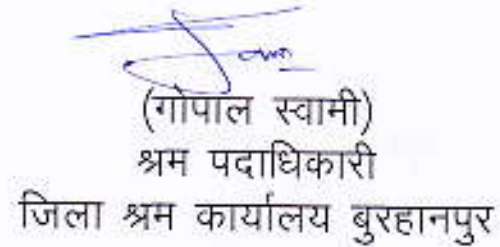 (गोपाल स्वामी)
श्रम पदाधिकारी
जिला श्रम कार्यालय बुरहानपुर